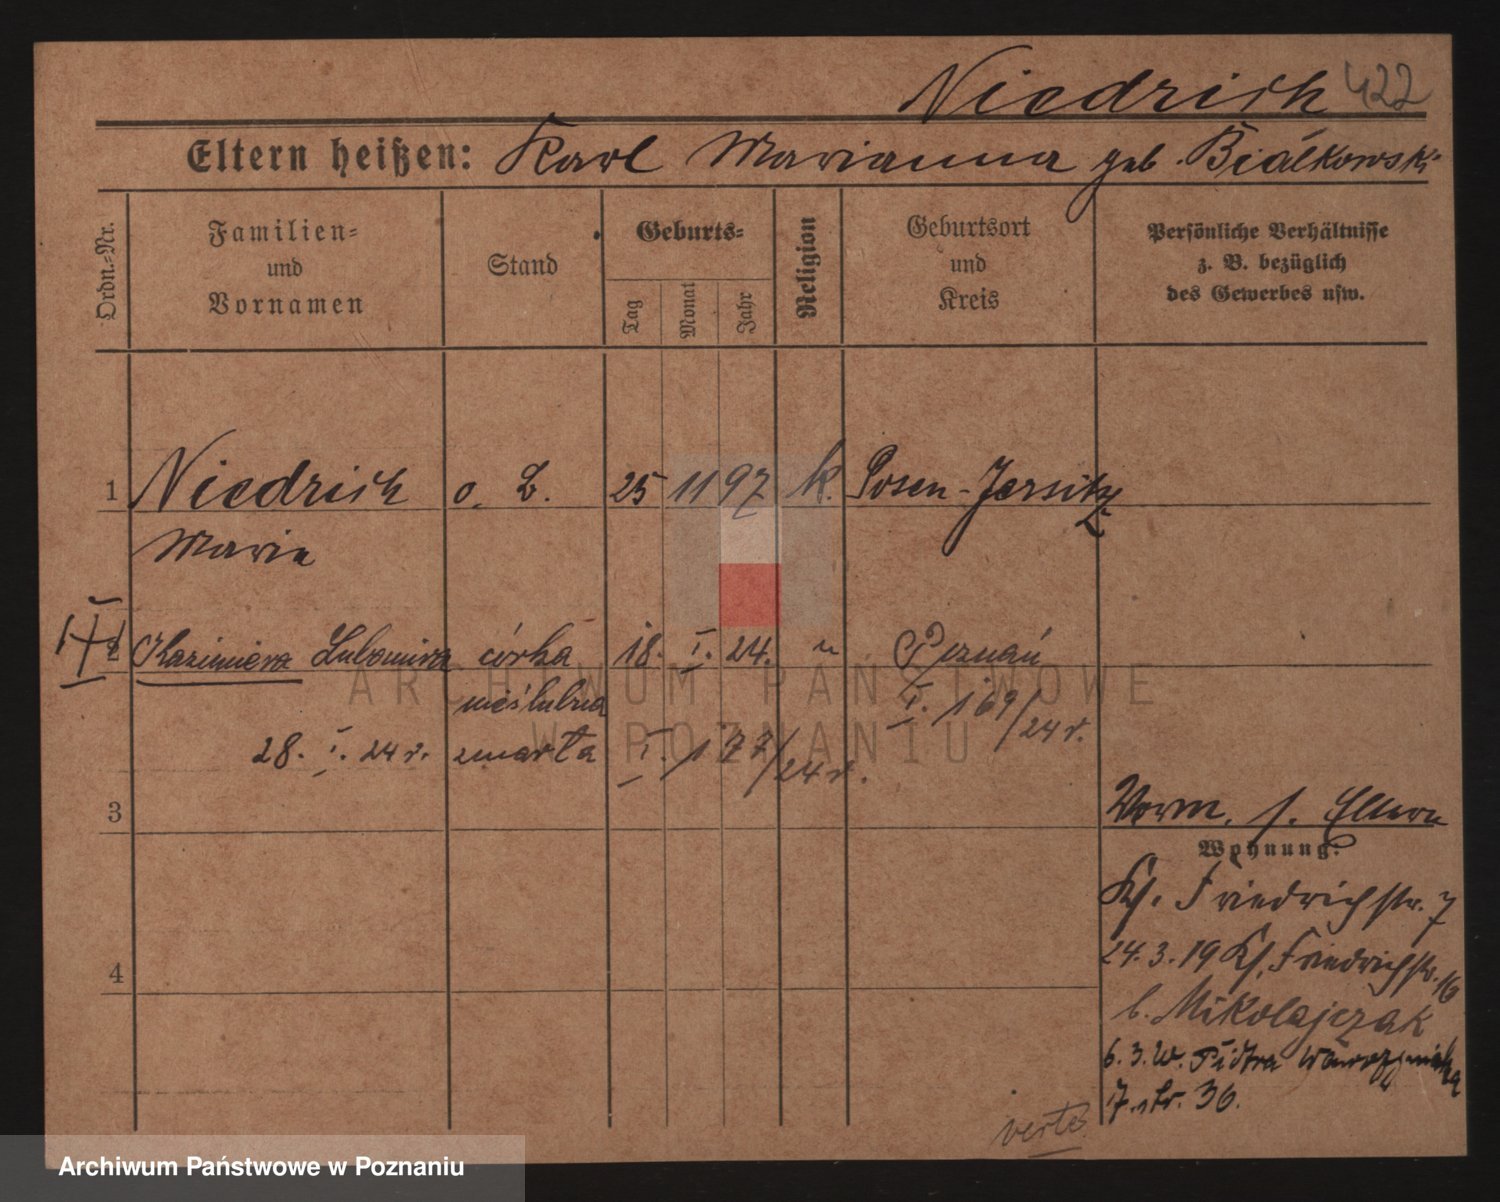 Niedrich 422
Eltern heißen: Karl Marianna geb. Białkowski
Ordn.-Nr.
Familien-
und
Vornamen
Stand
Geburts-
Tag
Monat
Jahr
Religion
Geburtsort
und
Kreis
Persönliche Verhältnisse
z. B. bezüglich
des Gewerbes usw.
1 Niedrich o. B. 25 11 97 k. Posen-Jersitz
Marie
2 Kazimiera Lubomira córka 18. I. 24. Poznań
nieślubna I. 169/24 r.
28. I. 24 r. zmarła I. 177/24 r.
3
Vorm. s. Eltern
Wohnung:
Ks. Friedrichstr. 7
24.3.19 Ks. Friedrichstr. 16
b. Mikolajczak
6.3. Piotra Wawrzyniaka
7. str. 36.
4
verte
ARCHIWUM PAŃSTWOWE
W POZNANIU
Archiwum Państwowe w Poznaniu